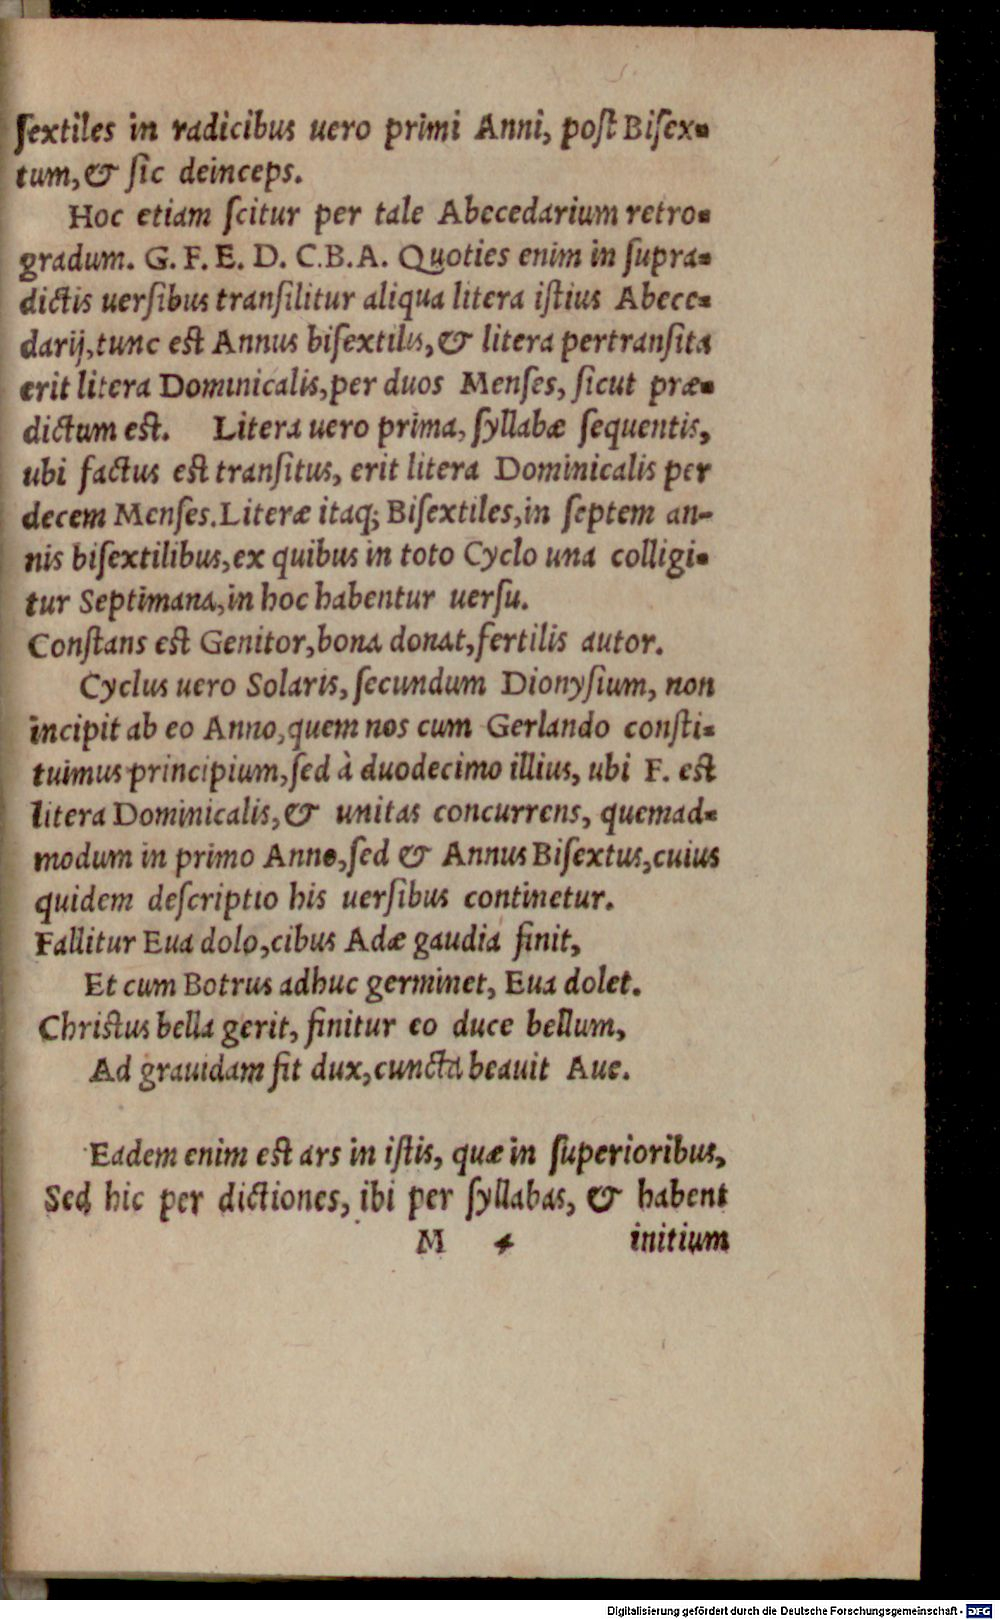 ſextiles in radicibus uero primi Anni, poſt Biſex-
tum, & ſic deinceps.
Hoc etiam ſcitur per tale Abecedarium retro-
gradum. G. F. E. D. C. B. A. Quoties enim in ſupra-
dictis uerſibus tranſilitur aliqua litera iſtius Abece-
darij, tunc eſt Annus biſextilis, & litera pertranſita
erit litera Dominicalis, per duos Menſes, ſicut præ-
dictum eſt. Litera uero prima, ſyllabæ ſequentis,
ubi factus eſt tranſitus, erit litera Dominicalis per
decem Menſes. Literæ itaq; Biſextiles, in ſeptem an-
nis biſextilibus, ex quibus in toto Cyclo una colligi-
tur Septimana, in hoc habentur uerſu.
Conſtans eſt Genitor, bona donat, fertilis autor.
Cyclus uero Solaris, ſecundum Dionyſium, non
incipit ab eo Anno, quem nos cum Gerlando conſti-
tuimus principium, ſed à duodecimo illius, ubi F. eſt
litera Dominicalis, & unitas concurrens, quemad-
modum in primo Anno, ſed & Annus Biſextus, cuius
quidem deſcriptio his uerſibus continetur.
Fallitur Eua dolo, cibus Adæ gaudia finit,
Et cum Botrus adhuc germinet, Eua dolet.
Chriſtus bella gerit, finitur eo duce bellum,
Ad grauidam fit dux, cuncta beauit Aue.
Eadem enim eſt ars in iſtis, quæ in ſuperioribus,
Sed hic per dictiones, ibi per ſyllabas, & habent
M 4 initium
Digitalisierung gefördert durch die Deutsche Forschungsgemeinschaft - DFG